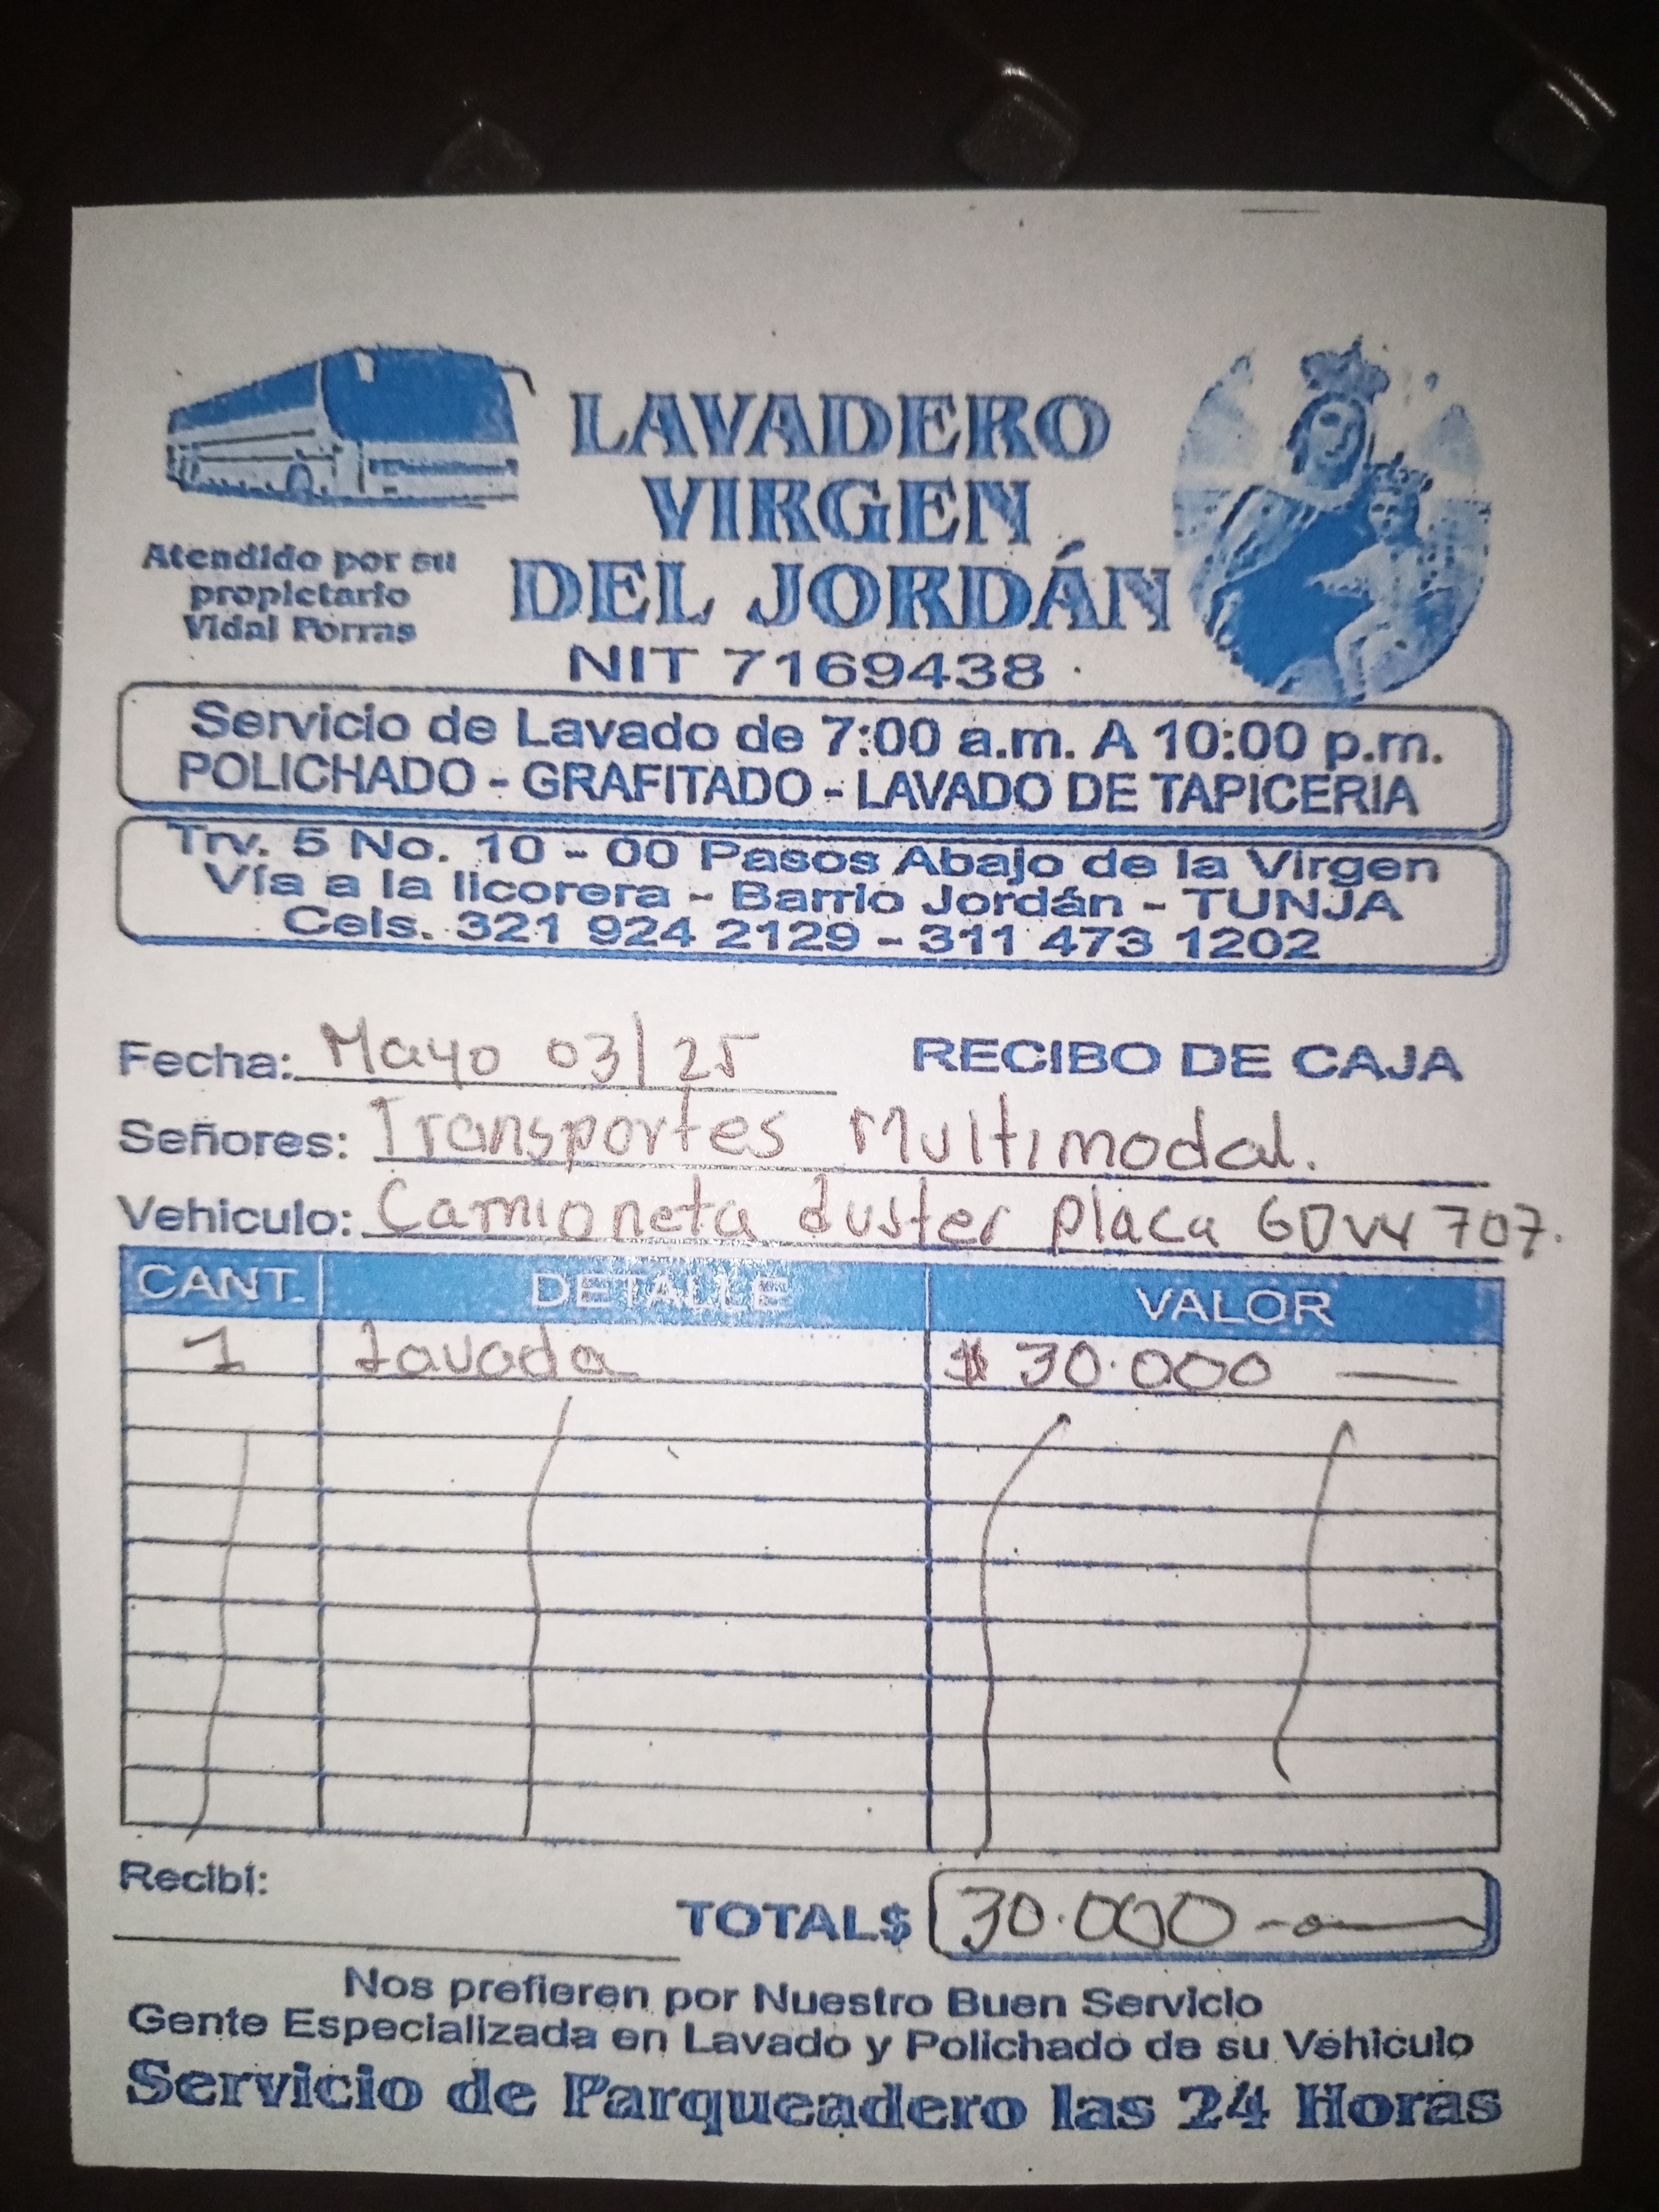 LAVADERO
VIRGEN
DEL JORDÁN
Atendido por su
propietario
Vidal Porras
NIT 7169438
Servicio de Lavado de 7:00 a.m. A 10:00 p.m.
POLICHADO - GRAFITADO - LAVADO DE TAPICERIA
Trv. 5 No. 10 - 00 Pasos Abajo de la Virgen
Vía a la licorera - Barrio Jordán - TUNJA
Cels. 321 924 2129 - 311 473 1202
Fecha: Mayo 03/25 RECIBO DE CAJA
Señores: Transportes Multimodal.
Vehiculo: Camioneta duster placa GDW 707.
CANT. DETALLE VALOR
1 Lavada $ 30.000
Recibí:
TOTAL$ 30.000
Nos prefieren por Nuestro Buen Servicio
Gente Especializada en Lavado y Polichado de su Vehiculo
Servicio de Parqueadero las 24 Horas